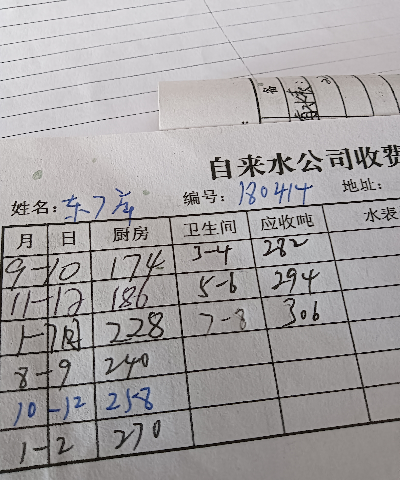 自来水公司收费
姓名: 东7户 编号: 180414 地址:
月 日 厨房 卫生间 应收吨 水表
9-10 174 3-4 282
11-12 186 5-6 294
228 7-8 306
8-9 240
10-12 258
1-2 270